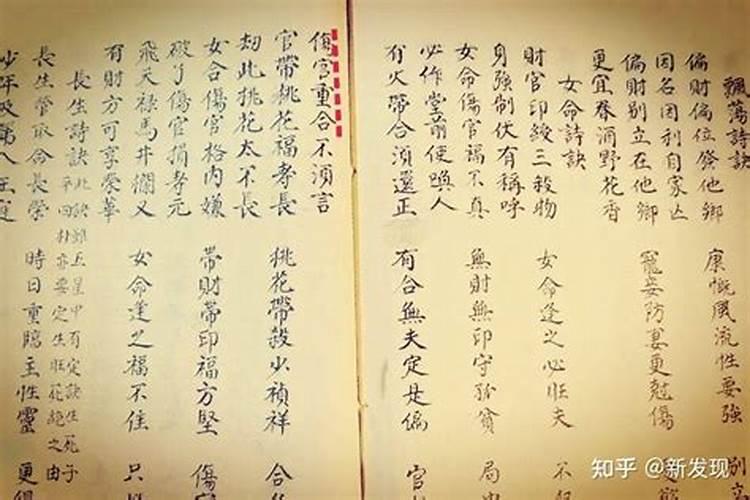 飄蕩詩訣
偏財偏位發他鄉 慷慨風流性要強 別立
因名因利自家亡
偏財別立在他鄉 寵妾防妻更尅傷
更宜春酒野花香
女命詩訣
財官印綬三般物 女命逢之必旺夫 不
身強制伏有稱呼
女命傷官福不真 無財無印守孤貧 局中
必作堂前使喚人
有夫帶合須還正 有合無夫定是偏 官
傷官重合不須言
官帶桃花福壽長 桃花帶殺少禎祥 合
劫此桃花太不長
女命傷官格內嫌 帶財帶印福方堅 傷官
破了傷官損壽元
飛天祿馬井欄叉 女命逢之福不佳 只
有財方可享榮華
長生詩訣 此訣雖五星中有定訣生死子
平四柱亦要定生旺死絕之由
長生管取命長榮 時日重臨主性靈 更得
少年及第入王庭
知乎 @新发现